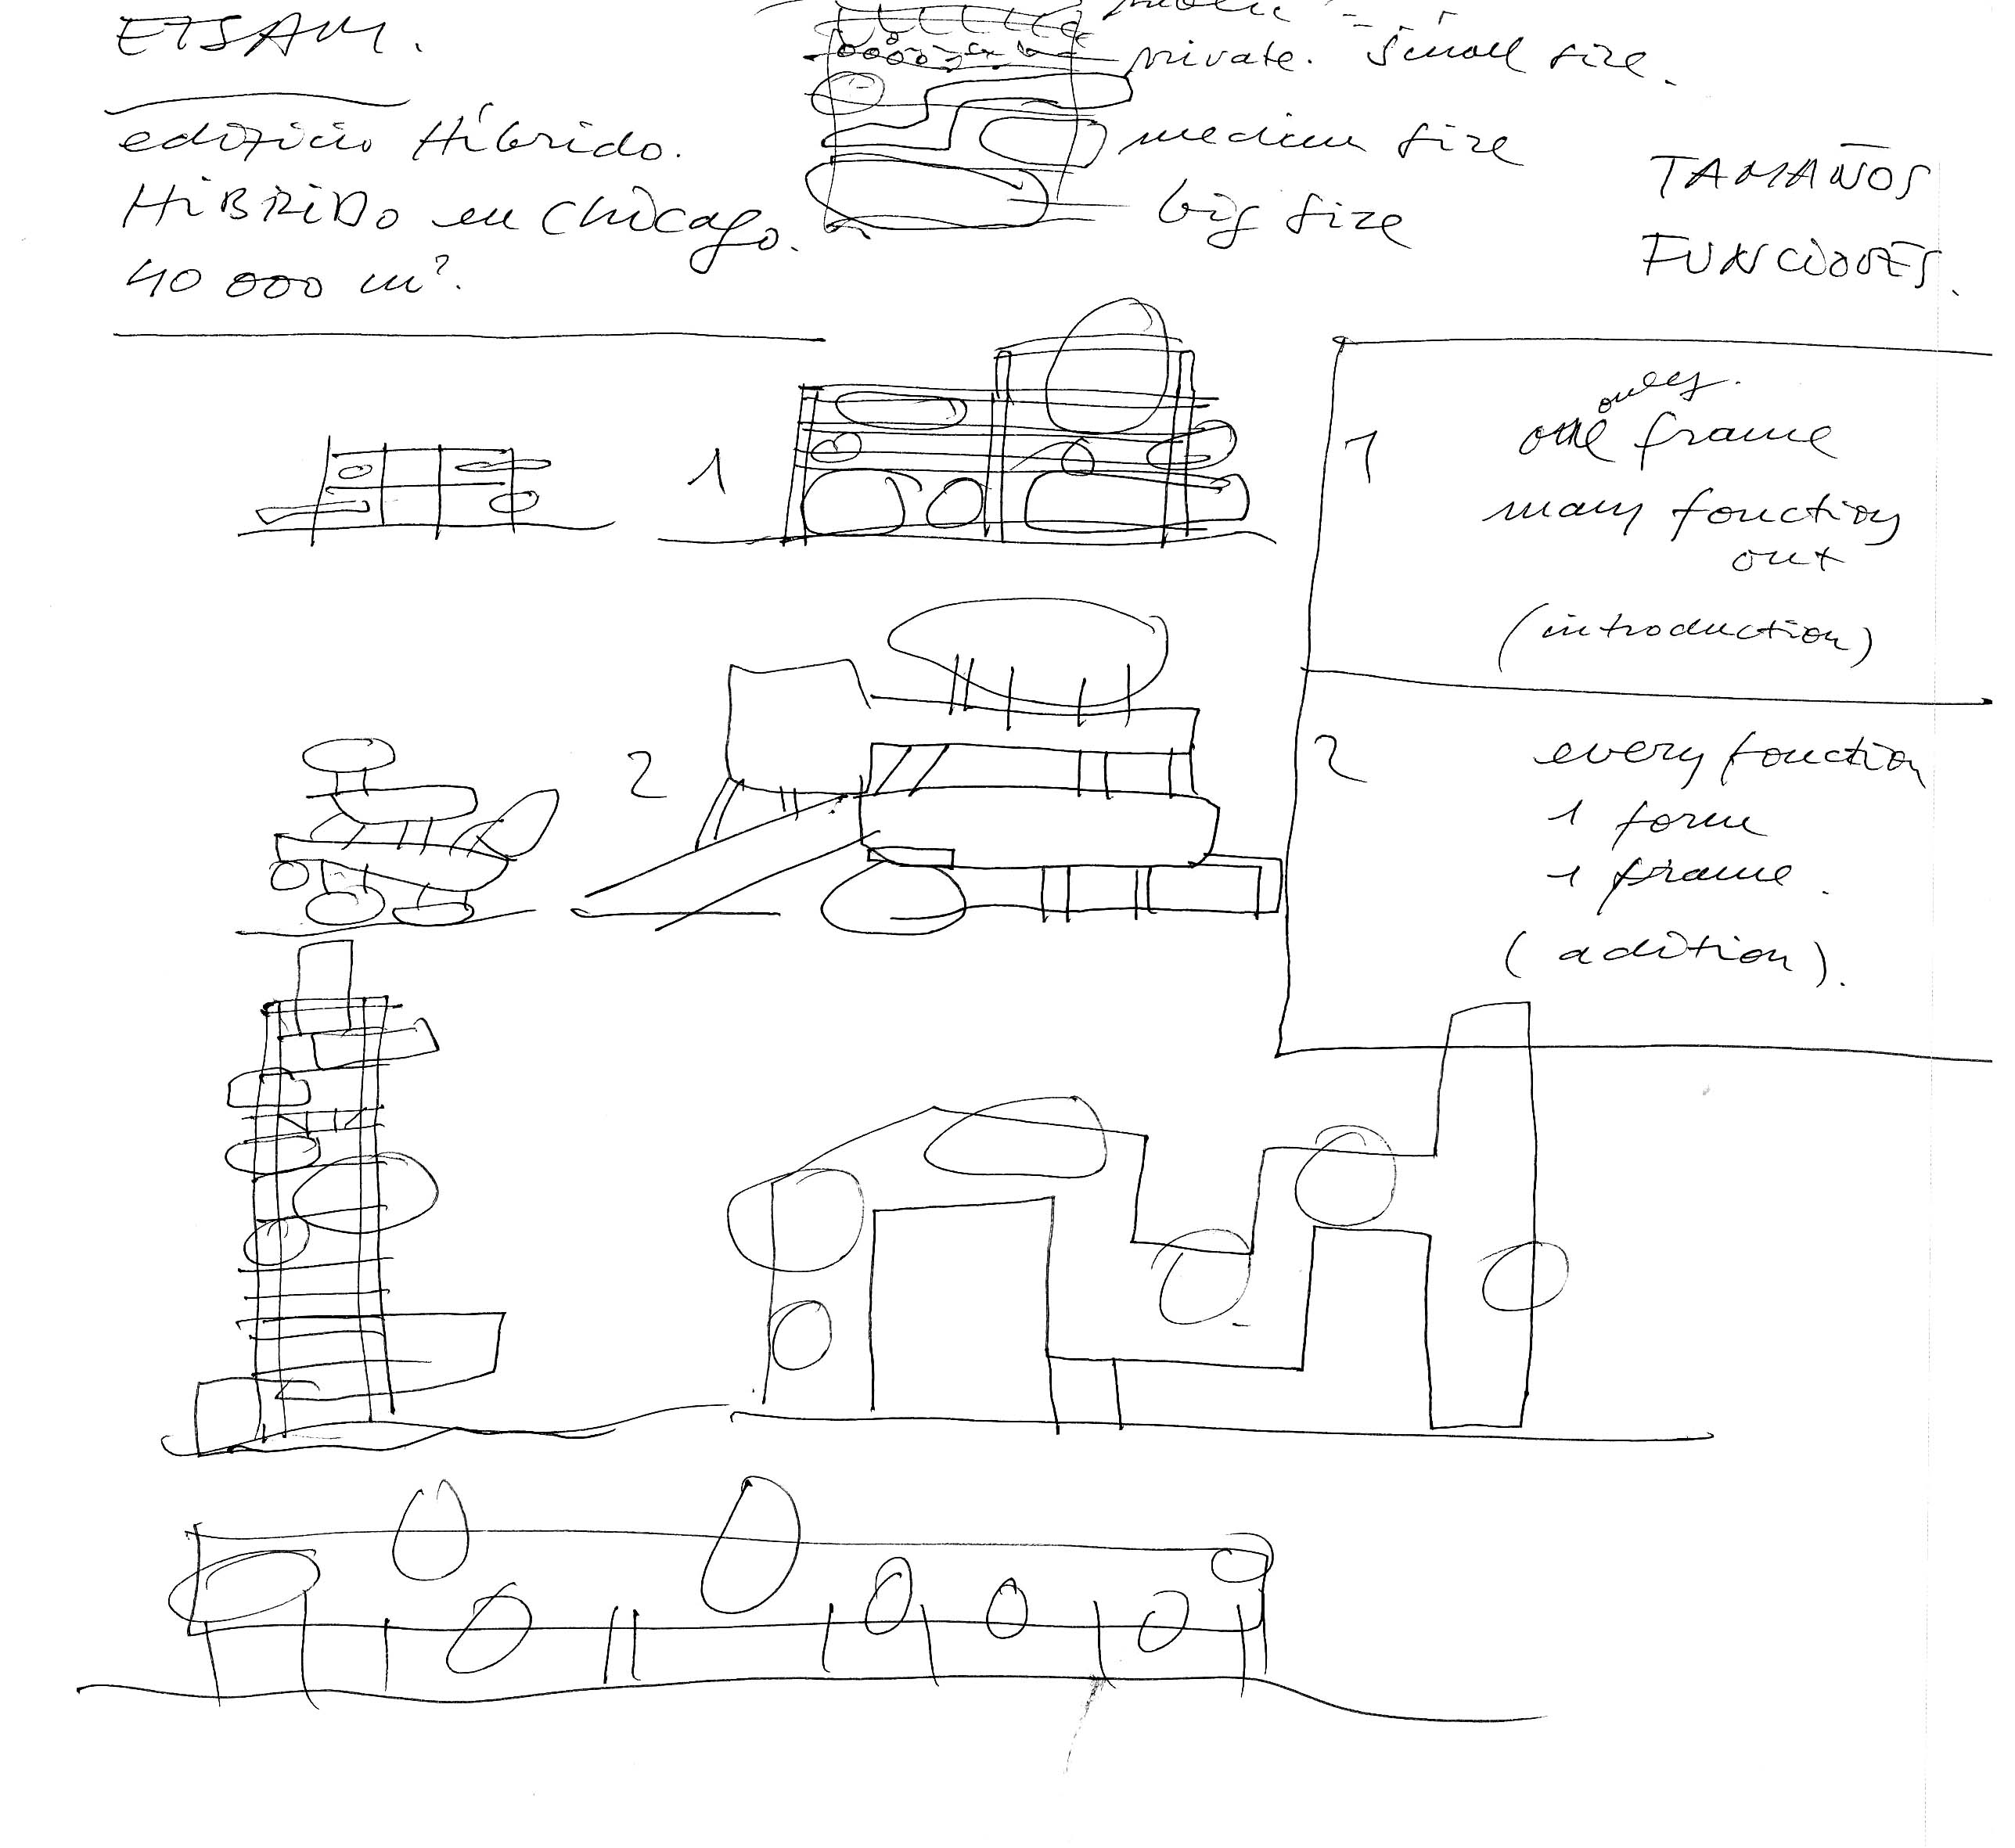 ETSAM.
edificio Híbrido.
HíBRIDO en Chicago.
40 000 m².
private. small size.
medium size
big size
TAMAÑOS
FUNCIONES.
1
2
1
only.
one frame
many fonction
out
(introduction)
2
every fonction
1 form
1 frame.
(adition).